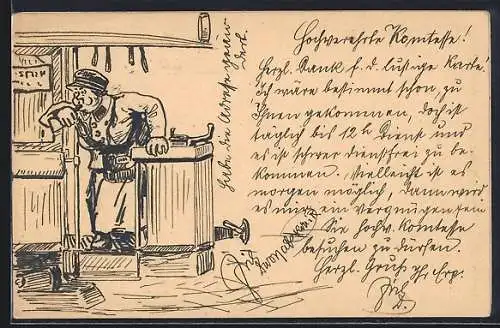 Hochverehrte Komtesse!
Herzl. Dank f. d. lustige Karte!
Ich wäre bestimmt schon, zu
Ihnen gekommen, doch ist
täglich bis 12 h Dienst und
es ist schwer dienstfrei zu be-
kommen. Vielleicht ist es
morgen möglich, dann wird
es mir ein Vergnügen sein
die hochv. Komtesse
besuchen zu dürfen.
Herzl. Gruß Ihr Erg.
Fritz
Habe die Adresse genau